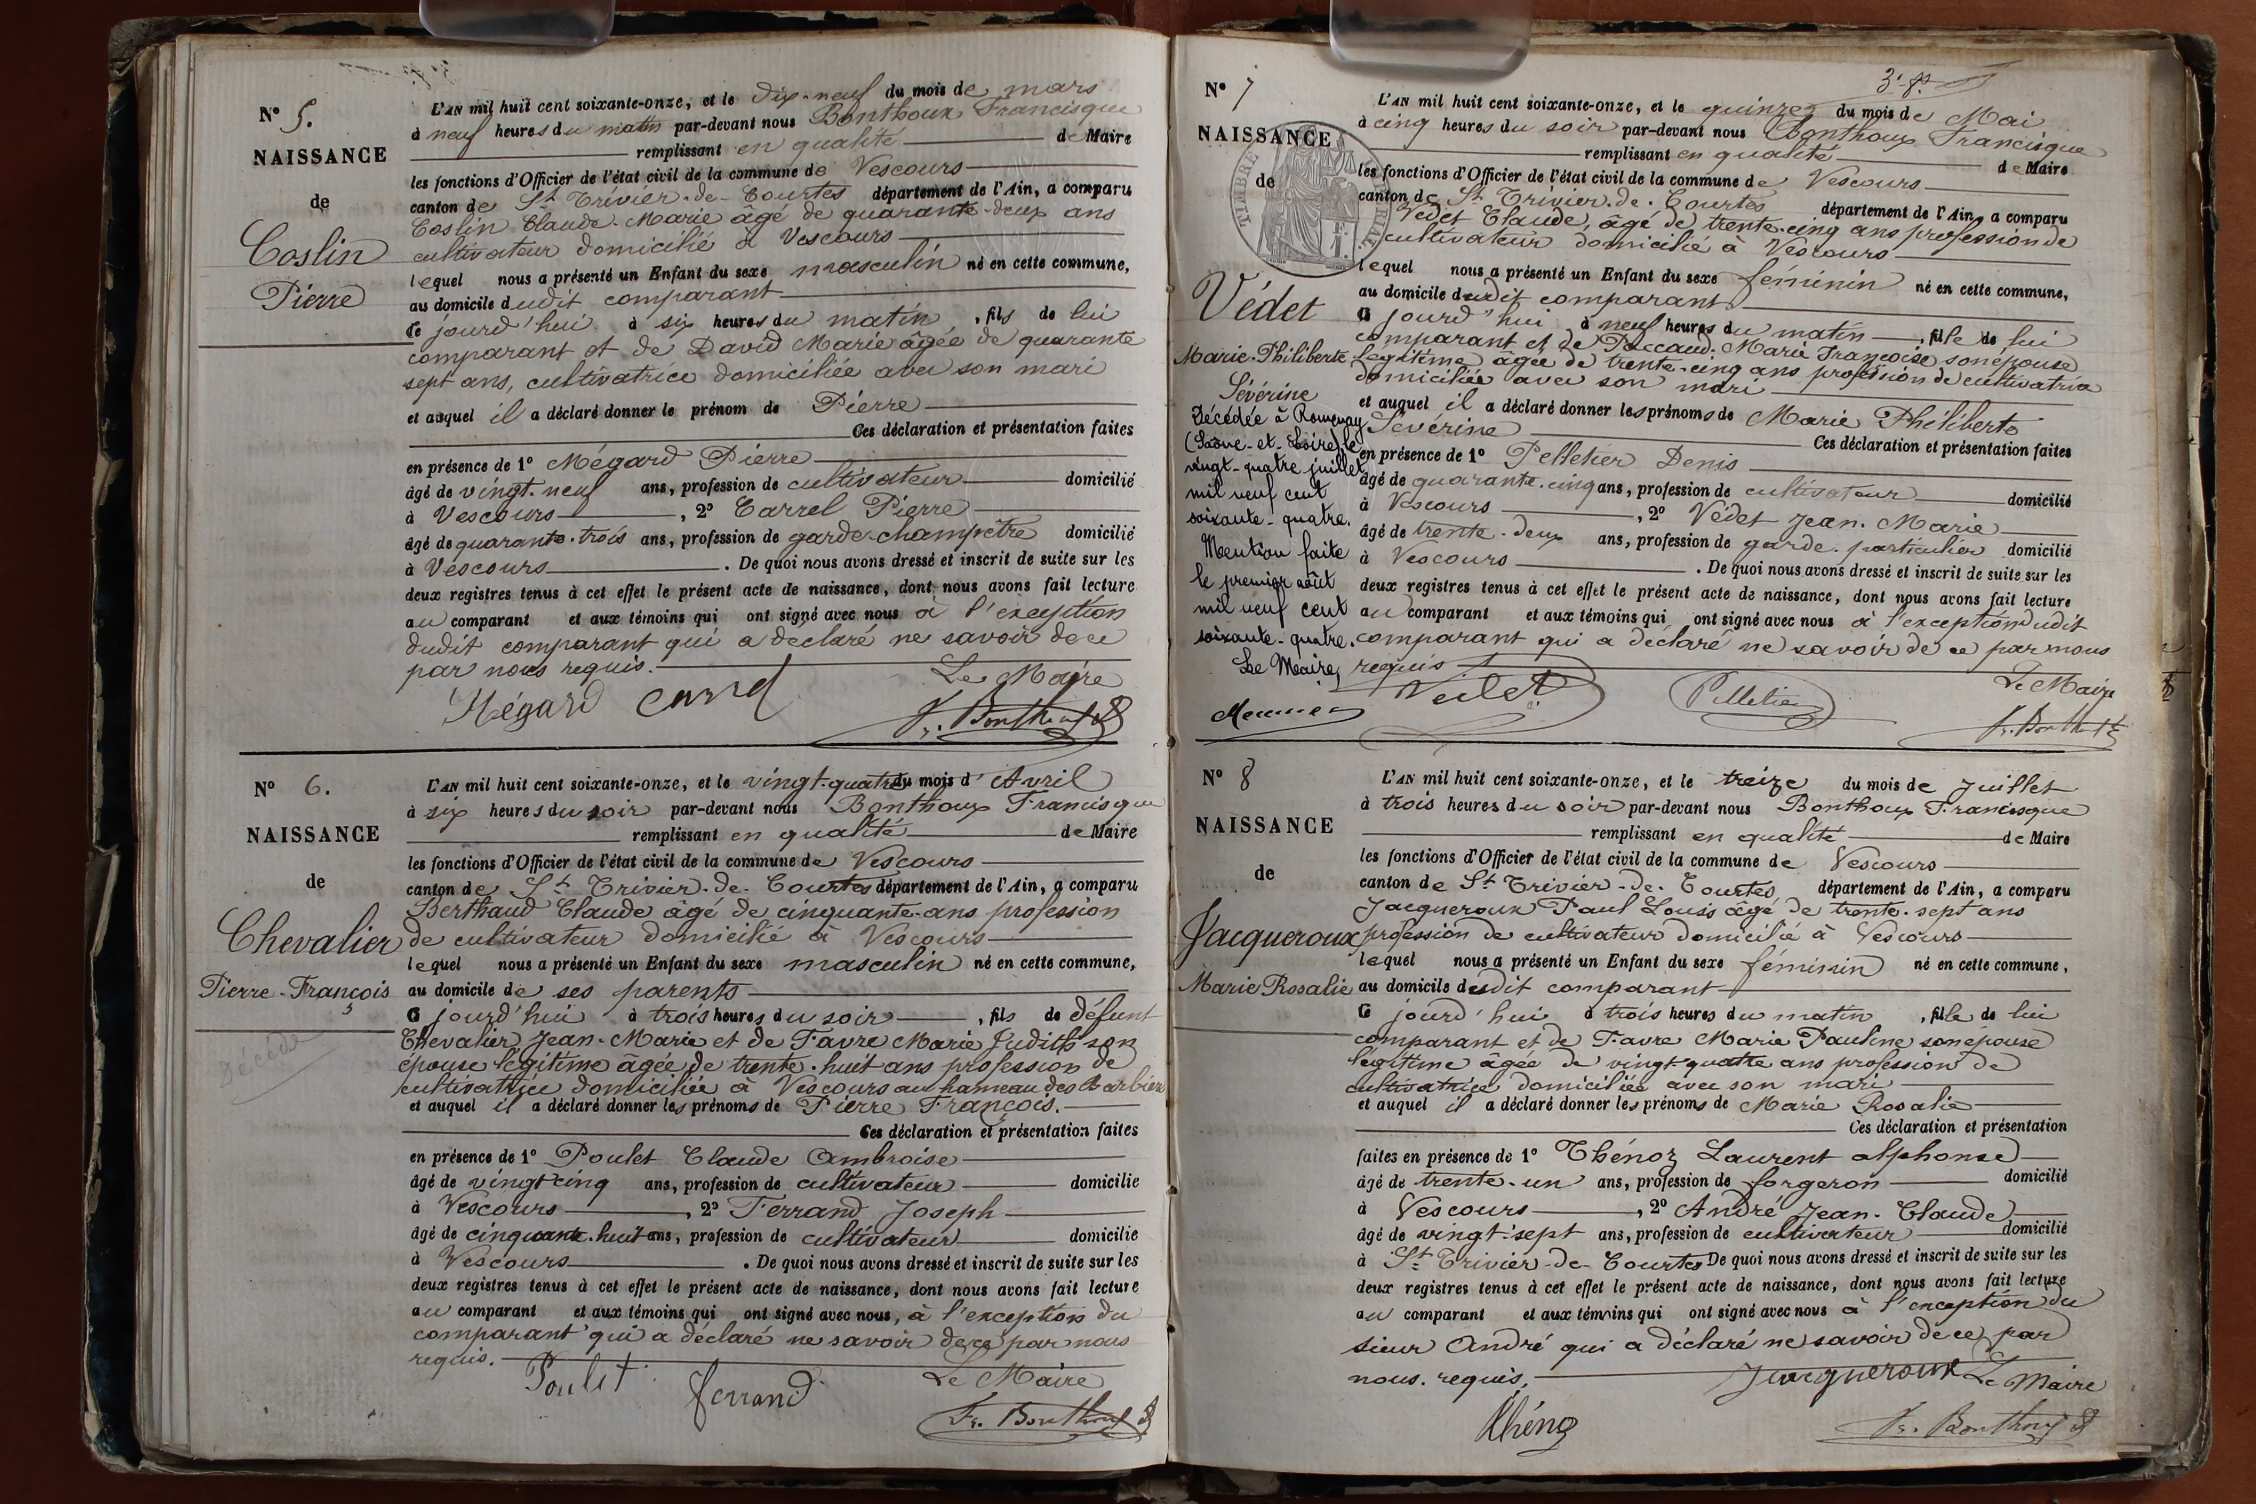 N° 5.
NAISSANCE
de
Coslin
Pierre
L'AN mil huit cent soixante-onze, et le dix-neuf du mois de mars
à neuf heures du matin par-devant nous Bonthoux Francisque
remplissant en qualité de Maire
les fonctions d'Officier de l'état civil de la commune de Vescours
canton de St Trivier-de-Courtes département de l'Ain, a comparu
Coslin Claude-Marie âgé de quarante-deux ans
cultivateur domicilié à Vescours
lequel nous a présenté un Enfant du sexe masculin né en cette commune,
au domicile dudit comparant
Ce jourd'hui à six heures du matin, fils de lui
comparant et de David Marie âgée de quarante
sept ans, cultivatrice domiciliée avec son mari
et auquel il a déclaré donner le prénom de Pierre
Ces déclaration et présentation faites
en présence de 1° Mégard Pierre
âgé de vingt-neuf ans, profession de cultivateur domicilié
à Vescours, 2° Carrel Pierre
âgé de quarante-trois ans, profession de garde-champêtre domicilié
à Vescours. De quoi nous avons dressé et inscrit de suite sur les
deux registres tenus à cet effet le présent acte de naissance, dont nous avons fait lecture
au comparant et aux témoins qui ont signé avec nous à l'exception
dudit comparant qui a déclaré ne savoir de ce
par nous requis.
Le Maire
Mégard Carrel Fr. Bonthoux
N° 6.
NAISSANCE
de
Chevalier
Pierre-François
Décédé
L'AN mil huit cent soixante-onze, et le vingt-quatre du mois d'Avril
à six heures du soir par-devant nous Bonthoux Francisque
remplissant en qualité de Maire
les fonctions d'Officier de l'état civil de la commune de Vescours
canton de St Trivier-de-Courtes département de l'Ain, a comparu
Berthaud Claude âgé de cinquante-ans profession
de cultivateur domicilié à Vescours
lequel nous a présenté un Enfant du sexe masculin né en cette commune,
au domicile de ses parents
Ce jourd'hui à trois heures du soir, fils de défunt
Chevalier Jean-Marie et de Favre Marie Judith son
épouse légitime âgée de trente-huit ans profession de
cultivatrice domiciliée à Vescours au hameau des
et auquel il a déclaré donner les prénoms de Pierre François.
Ces déclaration et présentation faites
en présence de 1° Poulet Claude Ambroise
âgé de vingt-cinq ans, profession de cultivateur domicilié
à Vescours, 2° Ferrand Joseph
âgé de cinquante-huit ans, profession de cultivateur domicilié
à Vescours. De quoi nous avons dressé et inscrit de suite sur les
deux registres tenus à cet effet le présent acte de naissance, dont nous avons fait lecture
au comparant et aux témoins qui ont signé avec nous, à l'exception du
comparant qui a déclaré ne savoir de ce par nous
requis.
Le Maire
Poulet Ferrand
Fr. Bonthoux
3e f.
N° 7
NAISSANCE
de
Védet
Marie-Philiberte
Sévérine
Décédée à Romenay
(Saône-et-Loire) le
vingt-quatre juillet
mil neuf cent
soixante-quatre.
Mention faite
le premier août
mil neuf cent
soixante-quatre.
Le Maire,
L'AN mil huit cent soixante-onze, et le quinze du mois de Mai
à cinq heures du soir par-devant nous Bonthoux Francisque
remplissant en qualité de Maire
les fonctions d'Officier de l'état civil de la commune de Vescours
canton de St Trivier-de-Courtes département de l'Ain, a comparu
Vedet Claude, âgé de trente-cinq ans profession de
cultivateur domicilié à Vescours
lequel nous a présenté un Enfant du sexe féminin né en cette commune,
au domicile dudit comparant
Ce jourd'hui à neuf heures du matin, fille de lui
comparant et de Paccaud Marie Françoise son épouse
légitime âgée de trente-cinq ans profession de cultivatrice
domiciliée avec son mari
et auquel il a déclaré donner les prénoms de Marie Philiberte
Sévérine
Ces déclaration et présentation faites
en présence de 1° Pelletier Denis
âgé de quarante-cinq ans, profession de cultivateur domicilié
à Vescours, 2° Védet Jean-Marie
âgé de trente-deux ans, profession de garde-particulier domicilié
à Vescours. De quoi nous avons dressé et inscrit de suite sur les
deux registres tenus à cet effet le présent acte de naissance, dont nous avons fait lecture
au comparant et aux témoins qui ont signé avec nous à l'exception dudit
comparant qui a déclaré ne savoir de ce par nous
requis
Le Maire
Vedet Pelletier Fr. Bonthoux
N° 8
NAISSANCE
de
Jacqueroux
Marie Rosalie
L'AN mil huit cent soixante-onze, et le treize du mois de Juillet
à trois heures du soir par-devant nous Bonthoux Francisque
remplissant en qualité de Maire
les fonctions d'Officier de l'état civil de la commune de Vescours
canton de St Trivier-de-Courtes, département de l'Ain, a comparu
Jacqueroux Paul Louis âgé de trente-sept ans
profession de cultivateur domicilié à Vescours
lequel nous a présenté un Enfant du sexe féminin né en cette commune,
au domicile dudit comparant
Ce jourd'hui à trois heures du matin, fille de lui
comparant et de Favre Marie Pauline son épouse
légitime âgée de vingt-quatre ans profession de
cultivatrice domiciliée avec son mari
et auquel il a déclaré donner les prénoms de Marie Rosalie
Ces déclaration et présentation
faites en présence de 1° Thénoz Laurent alphonse
âgé de trente-un ans, profession de forgeron domicilié
à Vescours, 2° André Jean-Claude
âgé de vingt-sept ans, profession de cultivateur domicilié
à St Trivier-de-Courtes De quoi nous avons dressé et inscrit de suite sur les
deux registres tenus à cet effet le présent acte de naissance, dont nous avons fait lecture
au comparant et aux témoins qui ont signé avec nous à l'exception du
sieur André qui a déclaré ne savoir de ce par
nous requis.
Jacqueroux Le Maire
Thénoz Fr. Bonthoux